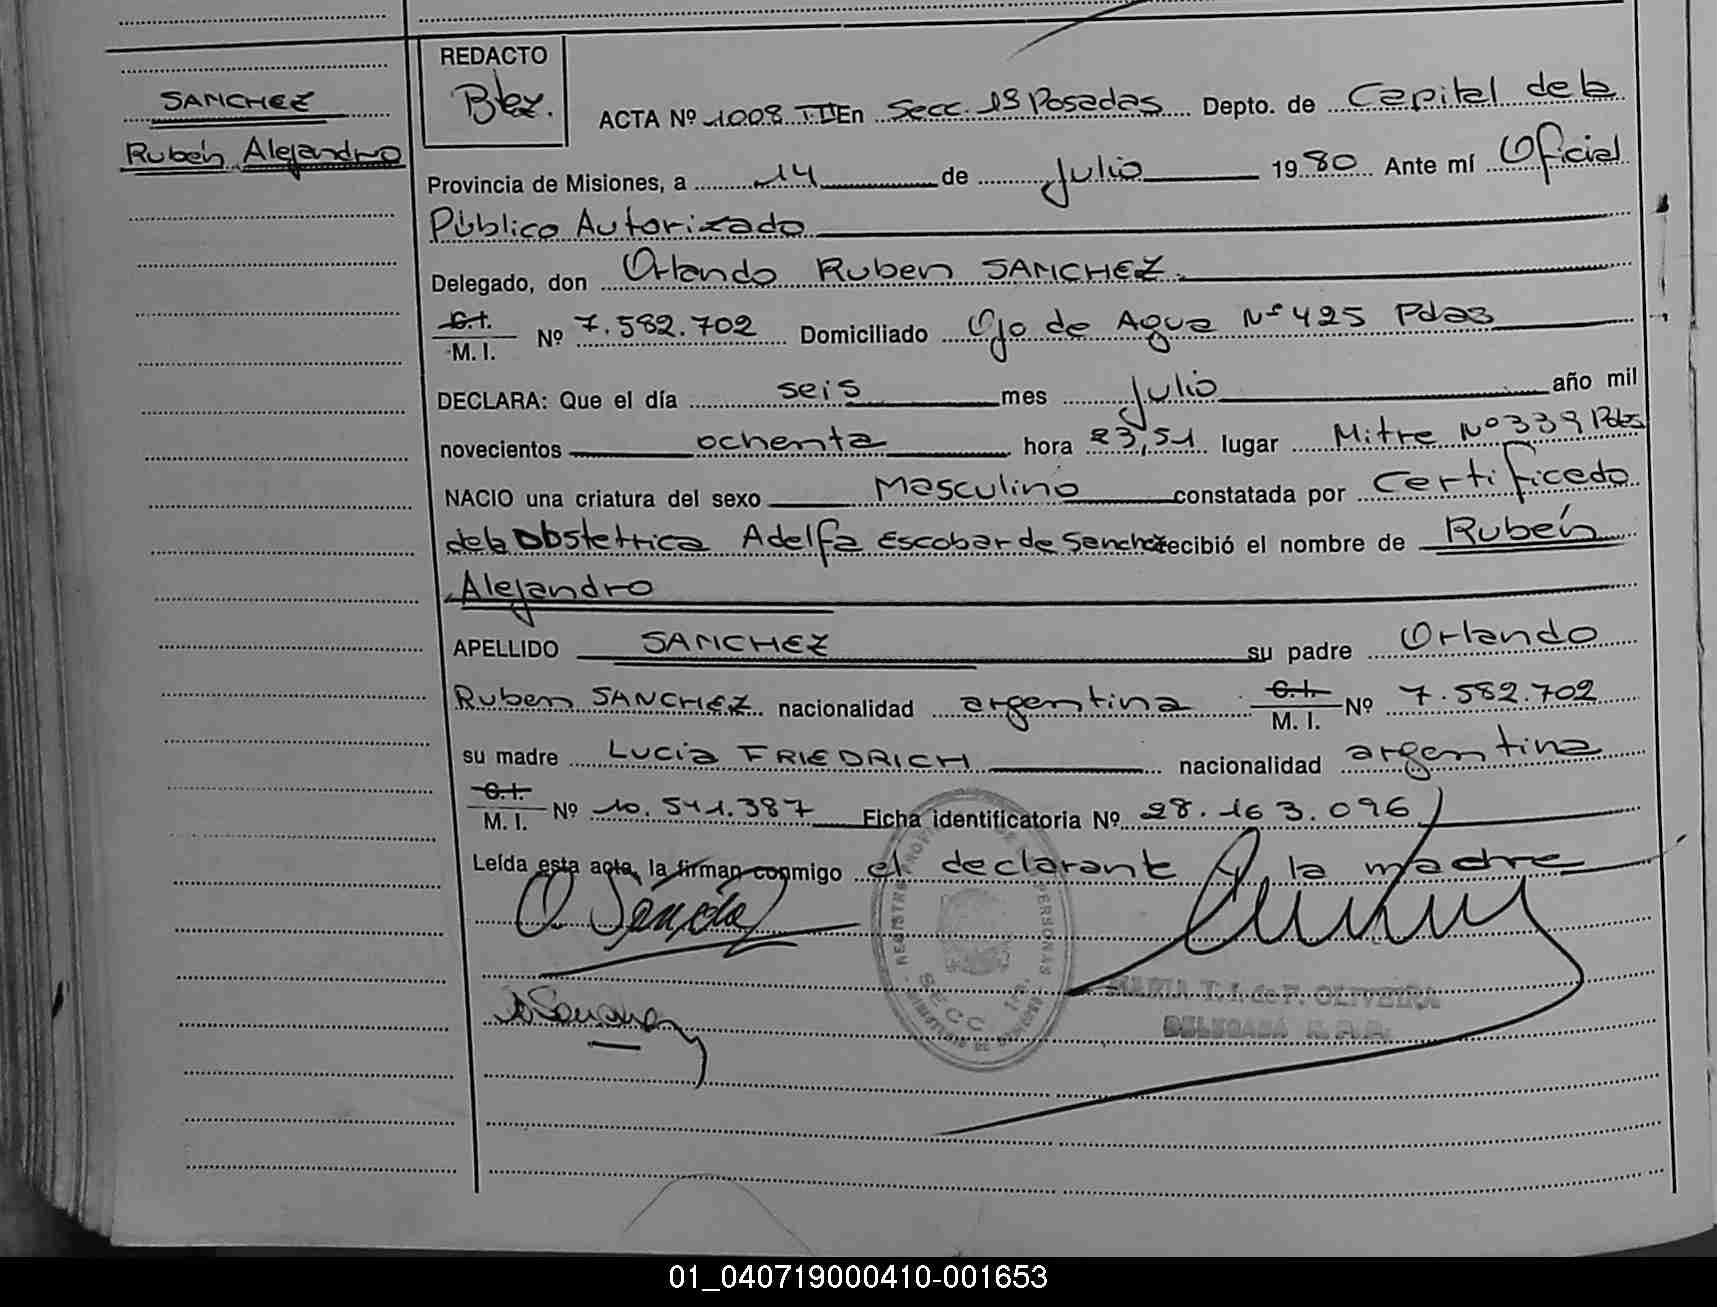 SANCHEZ
Rubén Alejandro
REDACTO
ACTA Nº 1008 TII En Secc. 1ª Posadas Depto. de Capital de la
Provincia de Misiones, a 14 de Julio 1980 Ante mí Oficial
Público Autorizado
Delegado, don Orlando Ruben SANCHEZ
C.I.
M. I. Nº 7.582.702 Domiciliado Ojo de Agua Nº 425 Pdas
DECLARA: Que el día seis mes Julio año mil
novecientos ochenta hora 23,51 lugar Mitre Nº 339 Pdas
NACIO una criatura del sexo Masculino constatada por Certificado
de la Obstetrica Adelfa Escobar de Sanchez recibió el nombre de Rubén
Alejandro
APELLIDO SANCHEZ su padre Orlando
Ruben SANCHEZ nacionalidad argentina C.I. M. I. Nº 7.582.702
su madre Lucia FRIEDRICH nacionalidad argentina
C.I.
M. I. Nº 10.541.387 Ficha identificatoria Nº 28.163.096
Leída esta acta, la firman conmigo el declarante y la madre
O. Sanchez
MARIA T. I. de F. OLIVEIRA
DELEGADA R.P.P.
SECC 1ra.
01_040719000410-001653